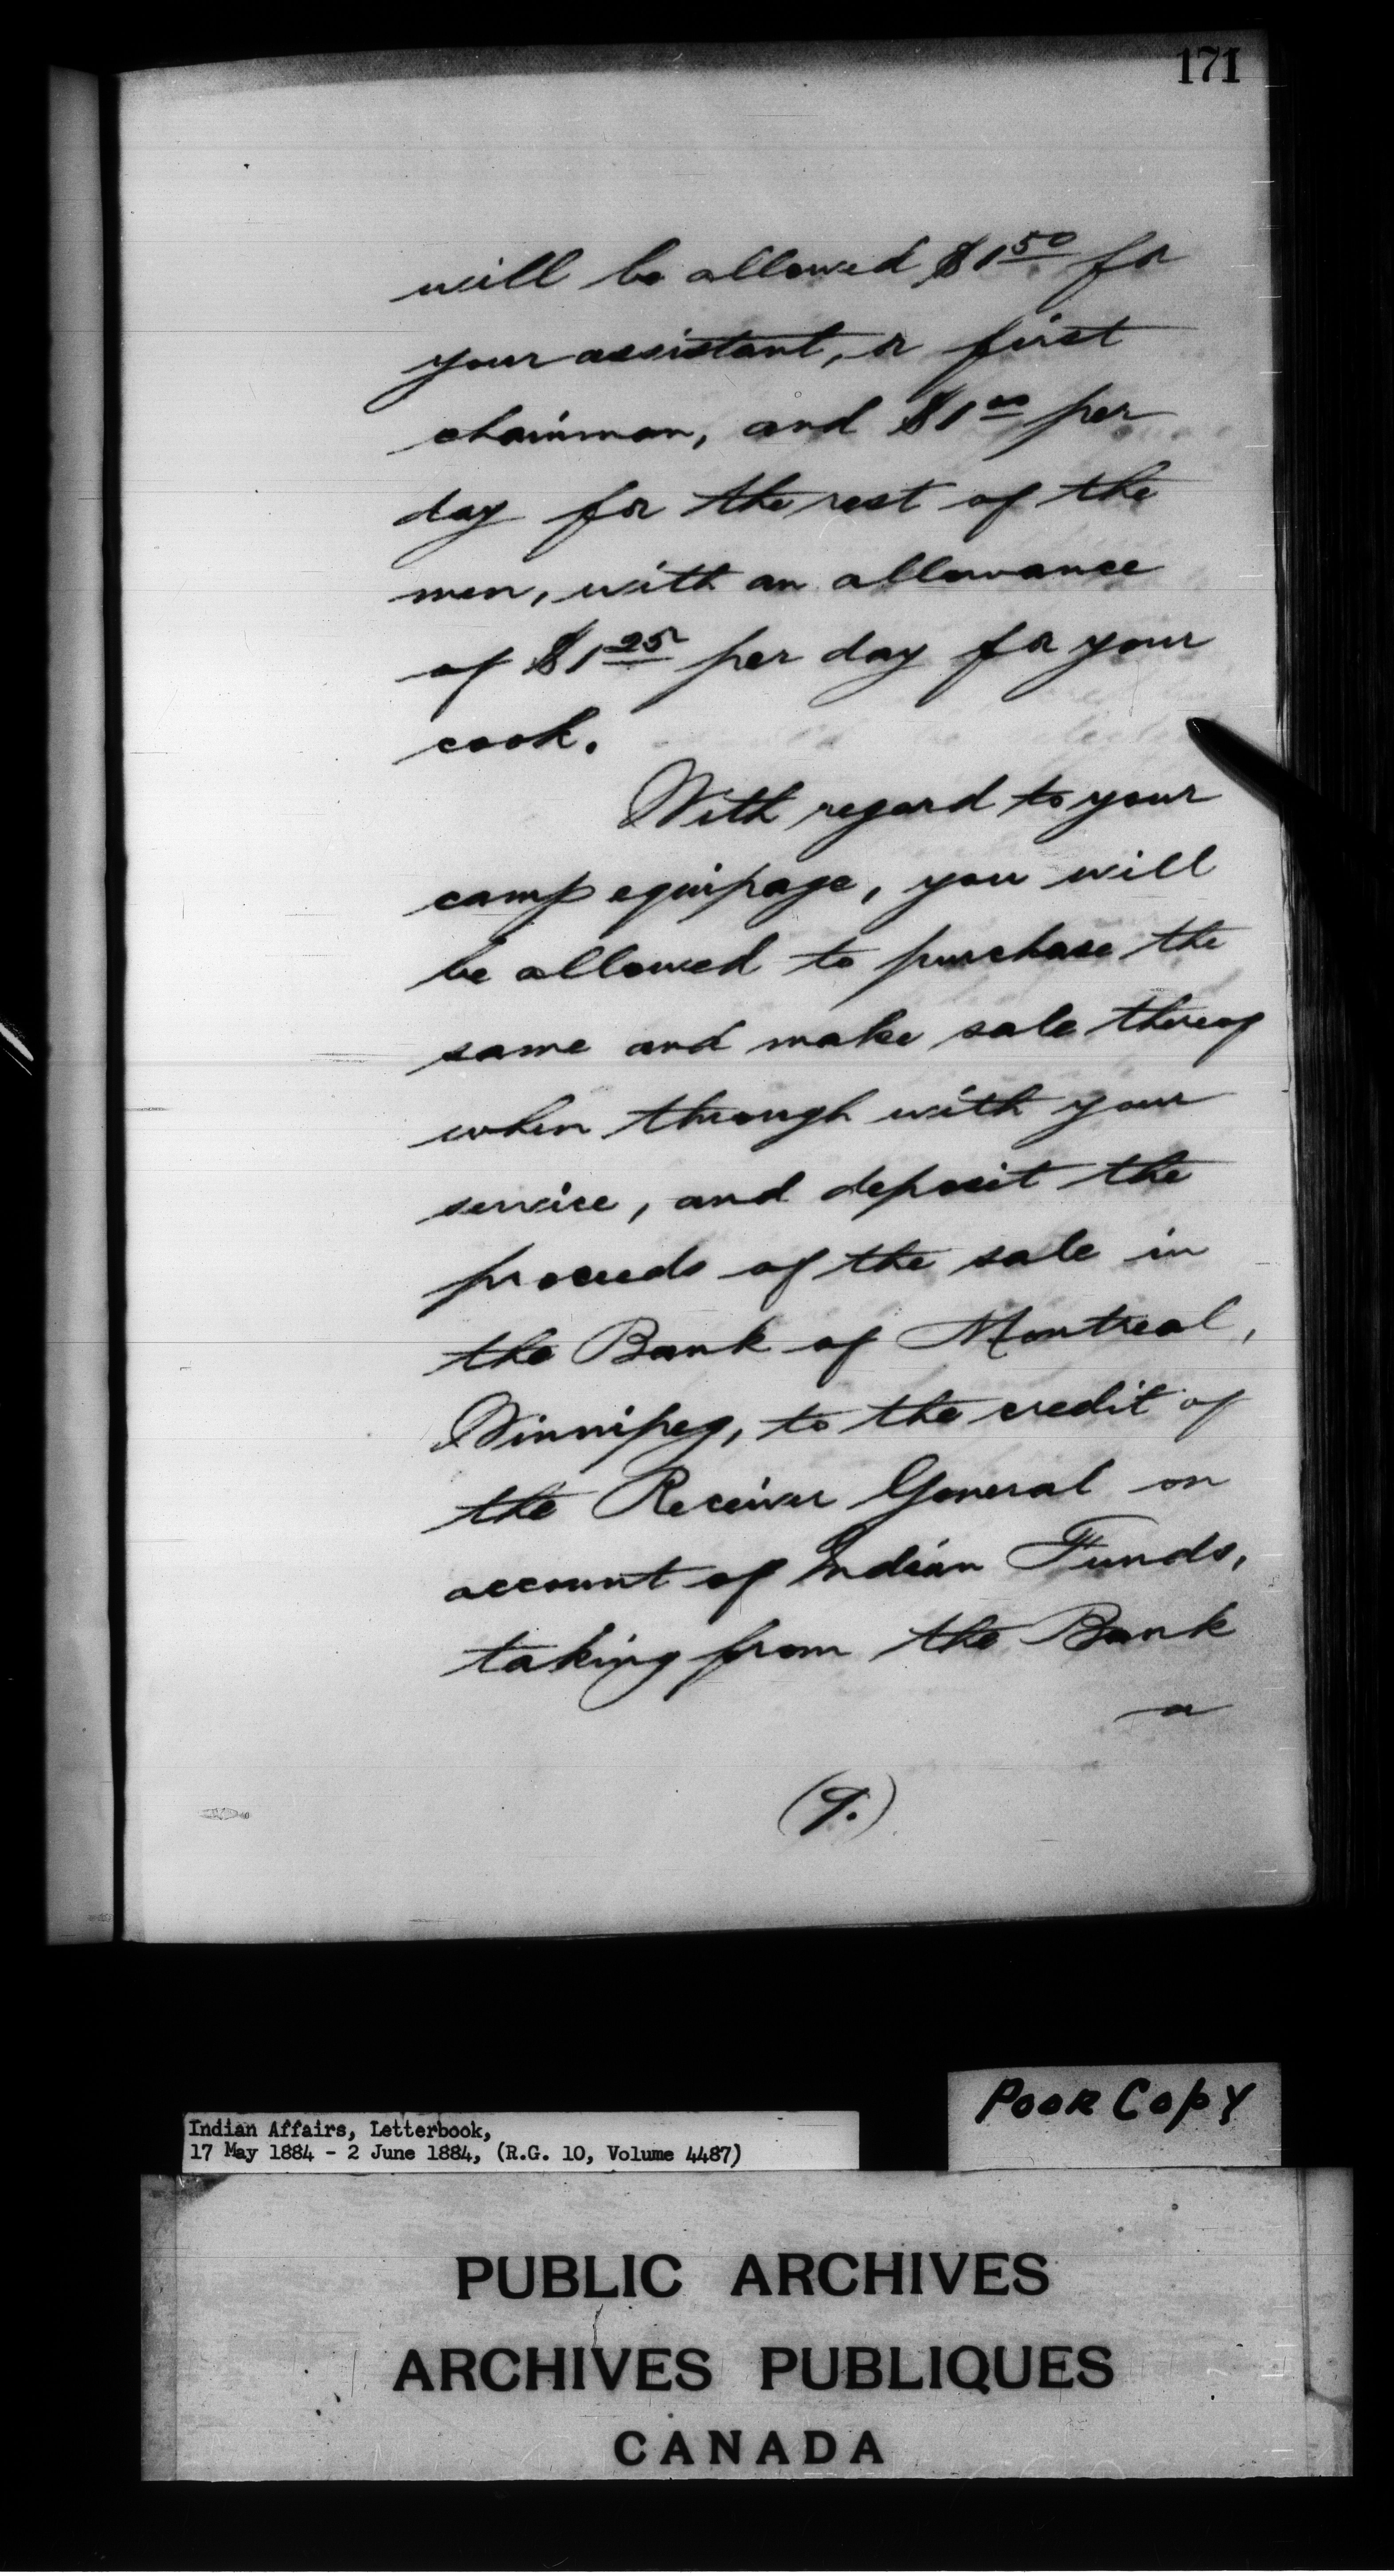 171
will be allowed $1 50 for
your assistant, or first
chainman, and $1 00 per
day for the rest of the
men, with an allowance
of $1 25 per day for your
cook.
With regard to your
camp equipage, you will
be allowed to purchase the
same and make sale thereof
when through with your
service, and deposit the
proceeds of the sale in
the Bank of Montreal,
Winnipeg, to the credit of
the Receiver General on
account of Indian Funds,
taking from the Bank
a
(9.)
POOR COPY
Indian Affairs, Letterbook,
17 May 1884 - 2 June 1884, (R.G. 10, Volume 4487)
PUBLIC ARCHIVES
ARCHIVES PUBLIQUES
CANADA